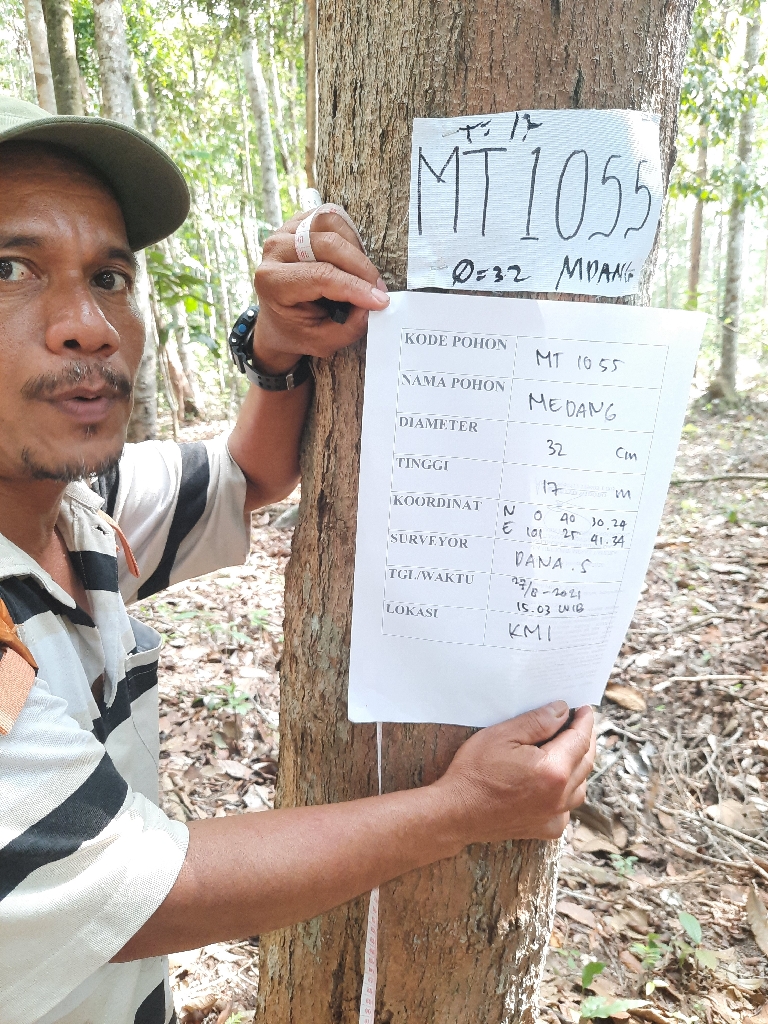 T: 17
MT1055
Ø=32 MDANG
KODE POHON MT 1055
NAMA POHON MEDANG
DIAMETER 32 Cm
TINGGI 17 m
KOORDINAT N 0 40 30.24
E 101 25 41.34
SURVEYOR DANA.S
TGL/WAKTU 27/8-2021
15.03 WIB
LOKASI KMI